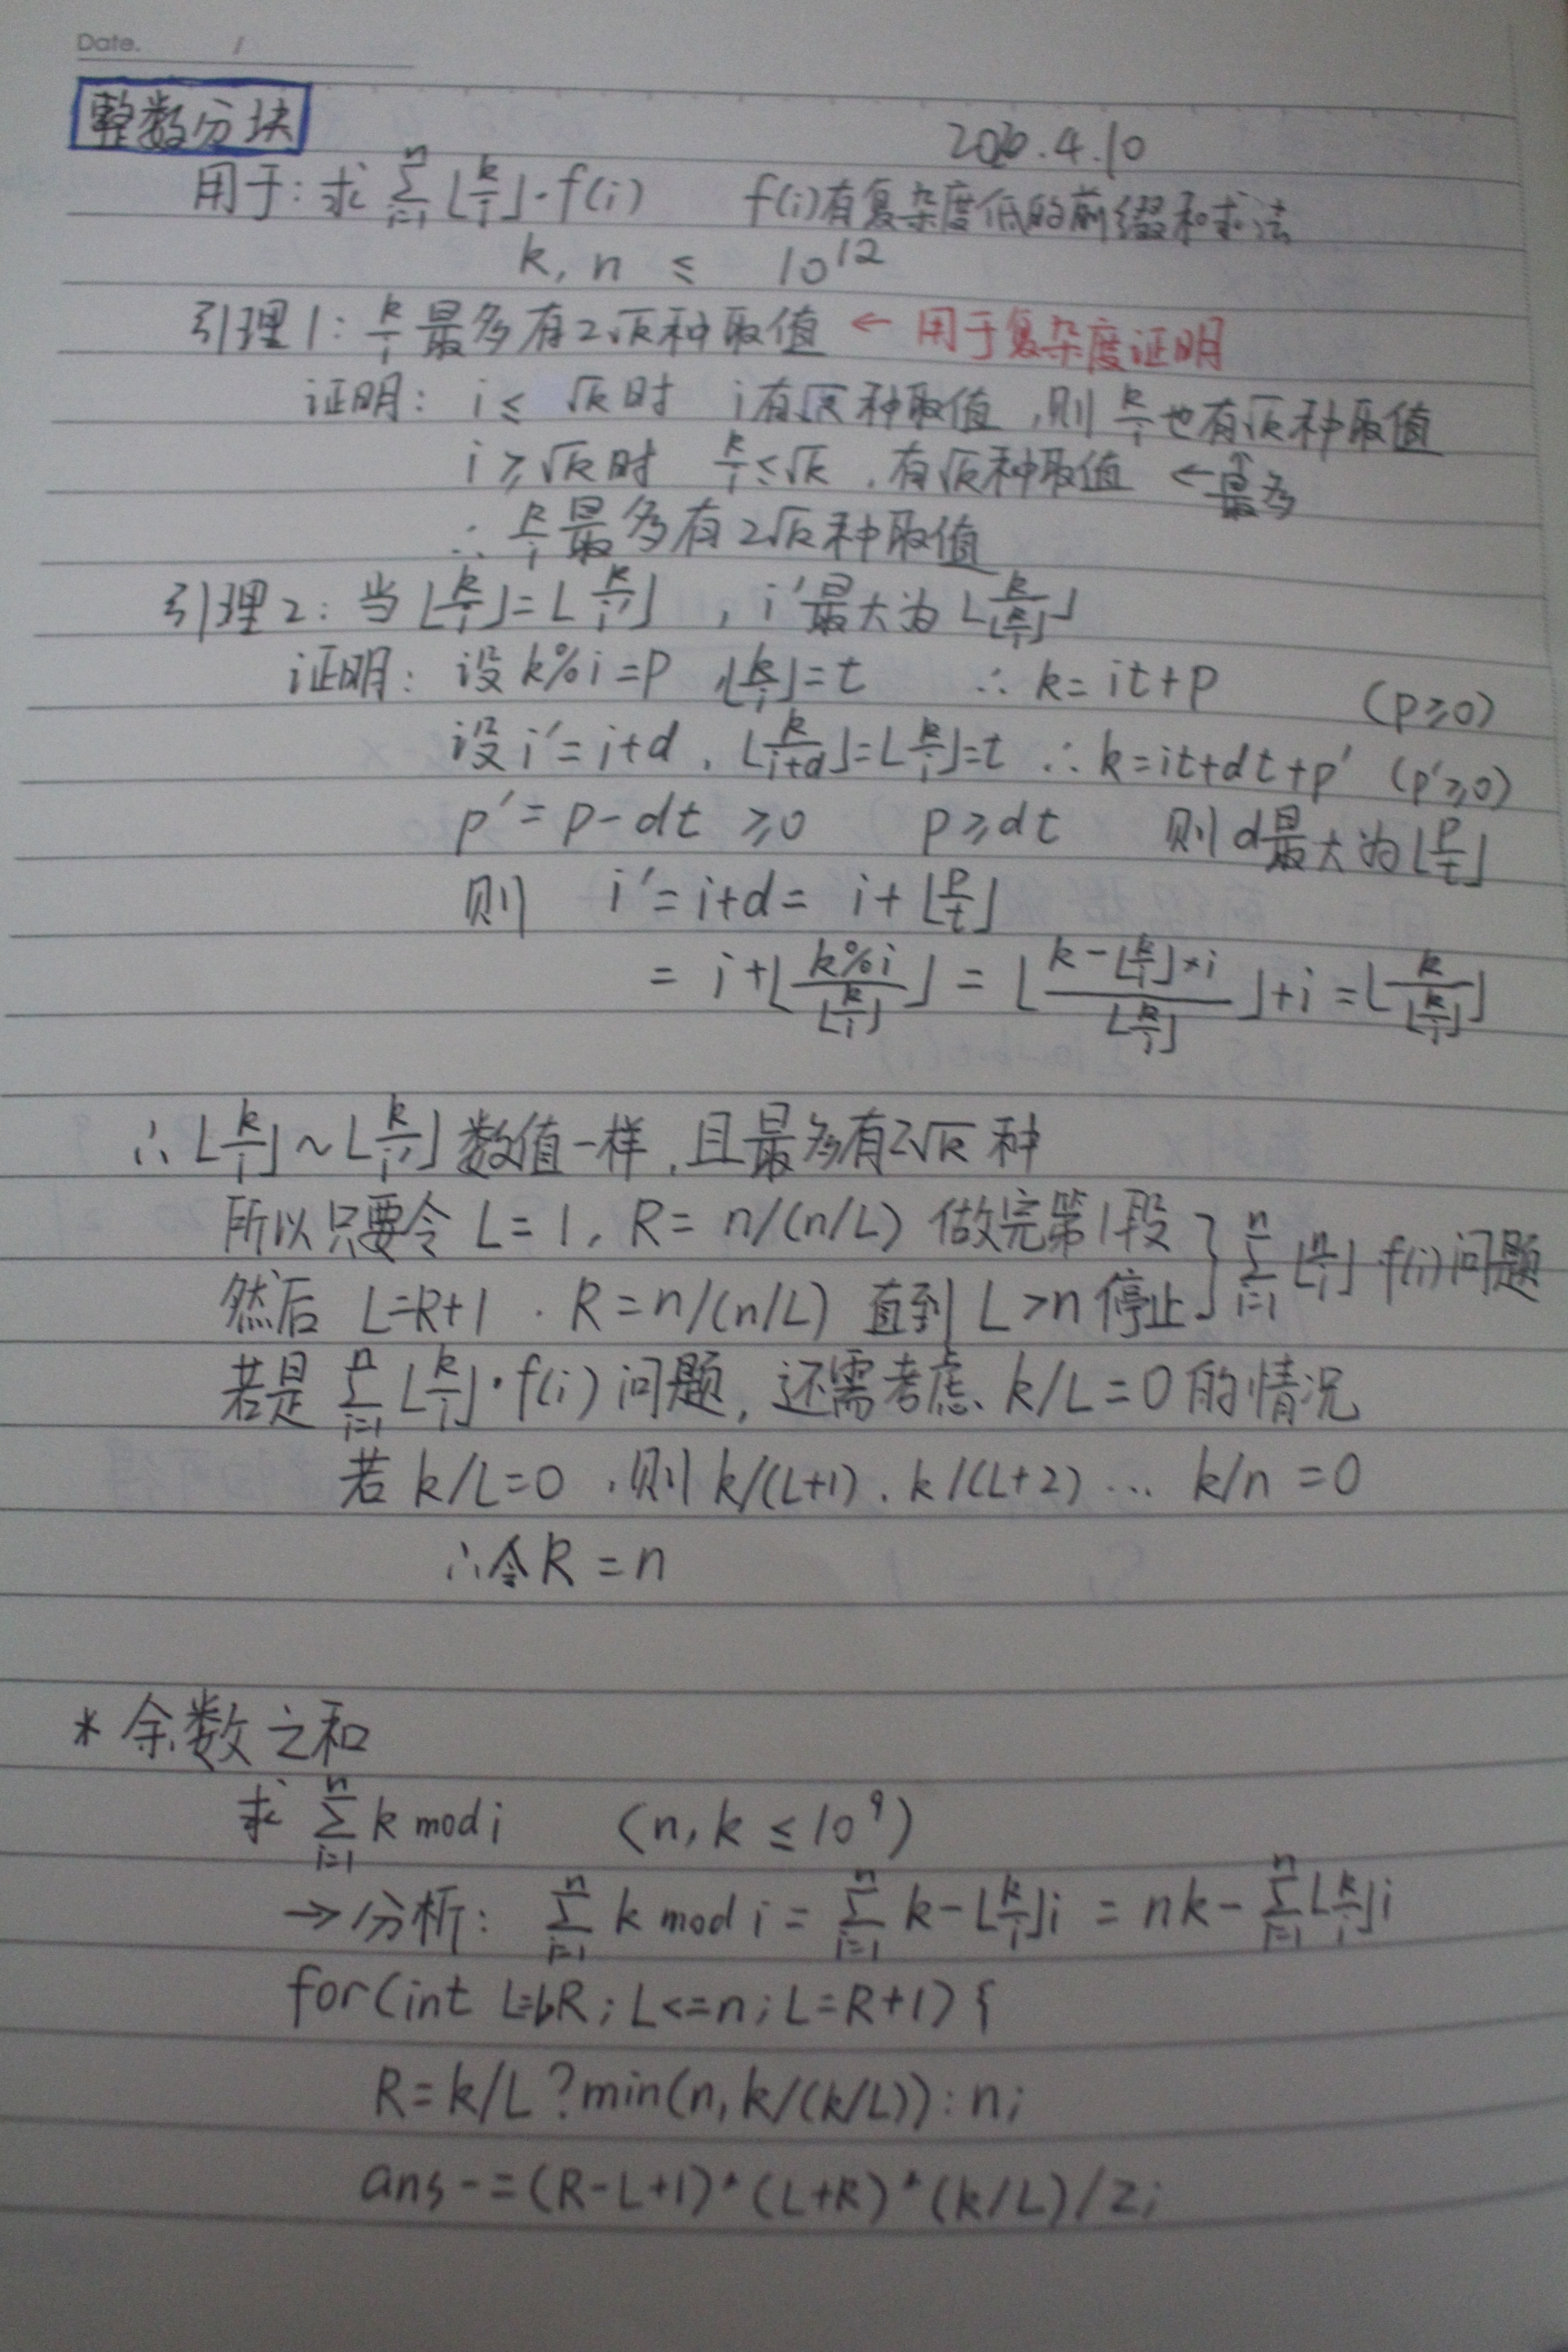 Date. /
整数分块
2020.4.10
用于: 求 $\sum_{i=1}^{n} \lfloor \frac{k}{i} \rfloor \cdot f(i)$ f(i)有复杂度低的前缀和求法
k, n ≤ $10^{12}$
引理1: $\frac{k}{i}$ 最多有2√k种取值 ← 用于复杂度证明
证明: i ≤ √k时 i有√k种取值,则 $\frac{k}{i}$ 也有√k种取值
i ≥ √k时 $\frac{k}{i}$ ≤ √k , 有√k种取值 ← 最多
∴ $\frac{k}{i}$ 最多有2√k种取值
引理2: 当 $\lfloor \frac{k}{i} \rfloor = \lfloor \frac{k}{i'} \rfloor$ , i'最大为 $\lfloor \frac{k}{\lfloor \frac{k}{i} \rfloor} \rfloor$
证明: 设 k%i = p , $\lfloor \frac{k}{i} \rfloor = t$ ∴ k = it+p (p≥0)
设 i' = i+d , $\lfloor \frac{k}{i+d} \rfloor = \lfloor \frac{k}{i} \rfloor = t$ ∴ k=it+dt+p' (p'≥0)
p' = p-dt ≥0 p≥dt 则d最大为 $\lfloor \frac{p}{t} \rfloor$
则 i' = i+d = i + $\lfloor \frac{p}{t} \rfloor$
= i + $\lfloor \frac{k\%i}{\lfloor \frac{k}{i} \rfloor} \rfloor = \lfloor \frac{k-\lfloor \frac{k}{i} \rfloor \times i}{\lfloor \frac{k}{i} \rfloor} \rfloor + i = \lfloor \frac{k}{\lfloor \frac{k}{i} \rfloor} \rfloor$
∴ $\lfloor \frac{k}{i} \rfloor \sim \lfloor \frac{k}{i'} \rfloor$ 数值一样,且最多有2√k 种
所以只要令 L = 1, R = n/(n/L) 做完第1段
然后 L=R+1 . R = n/(n/L) 直到 L>n 停止 } $\sum_{i=1}^{n} \lfloor \frac{n}{i} \rfloor \cdot f(i)$ 问题
若是 $\sum_{i=1}^{n} \lfloor \frac{k}{i} \rfloor \cdot f(i)$ 问题, 还需考虑 k/L=0 的情况
若 k/L=0 ,则 k/(L+1) . k/(L+2) ... k/n = 0
∴令R = n
* 余数之和
求 $\sum_{i=1}^{n}$ k mod i (n, k ≤ $10^9$)
→分析: $\sum_{i=1}^{n}$ k mod i = $\sum_{i=1}^{n} k - \lfloor \frac{k}{i} \rfloor i = nk - \sum_{i=1}^{n} \lfloor \frac{k}{i} \rfloor i$
for(int L=1,R; L<=n; L=R+1){
R=k/L?min(n, k/(k/L)):n;
ans-=(R-L+1)*(L+R)*(k/L)/2;